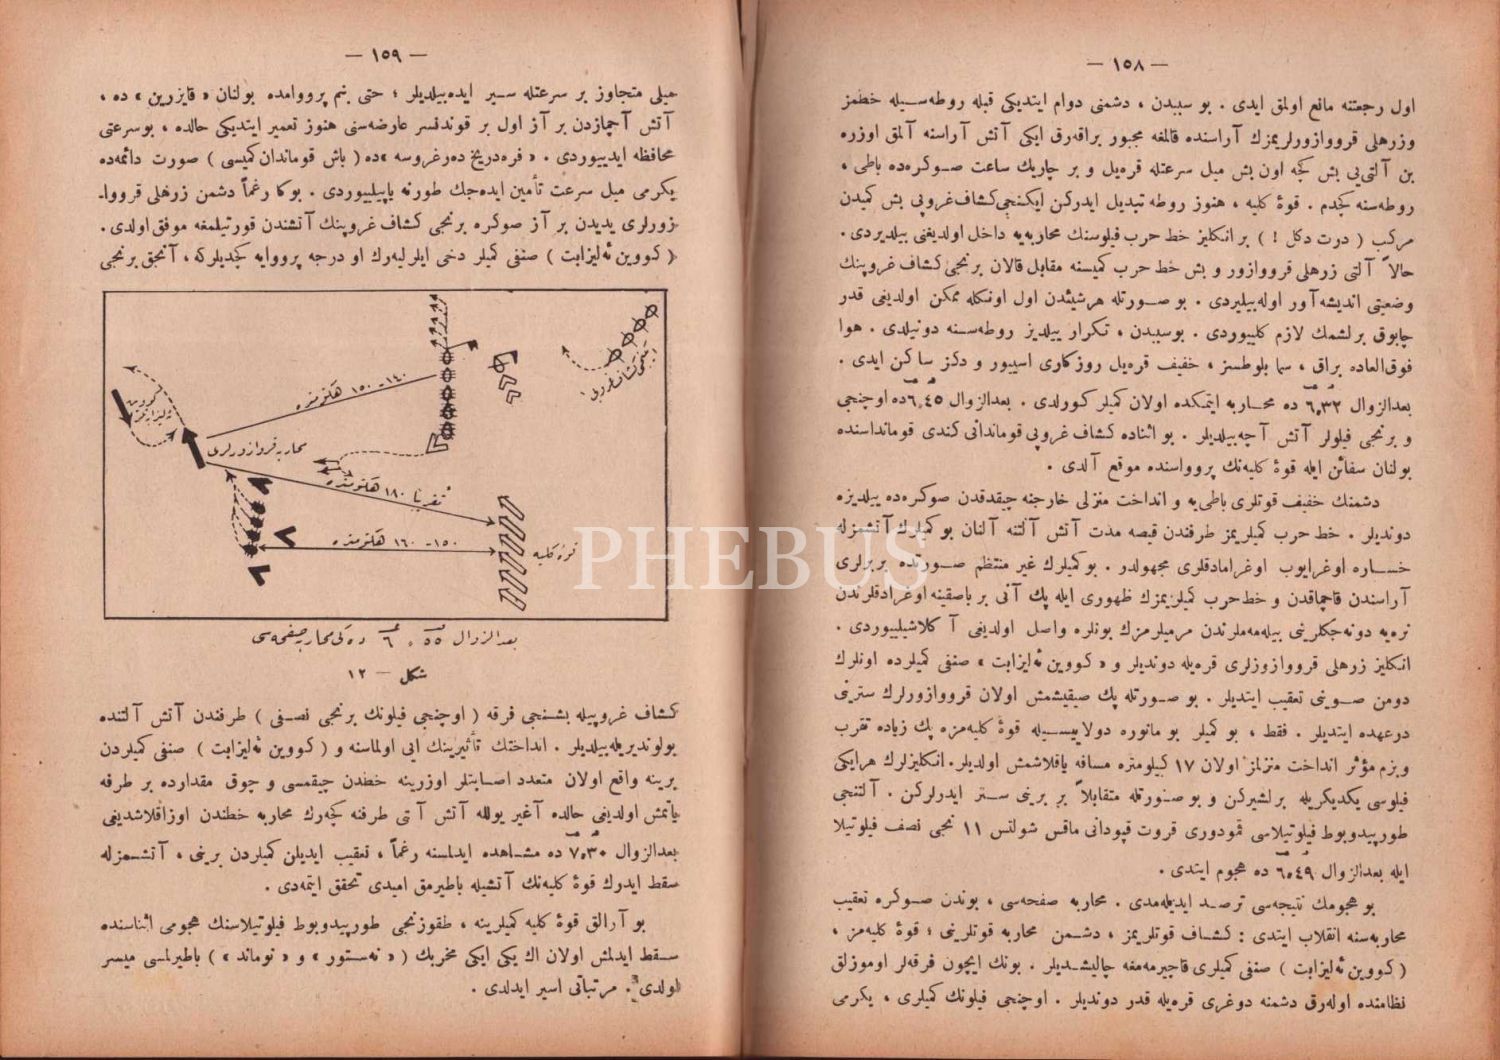 — ١٥٨ —
اول رجعتنه مانع اولمق ایدی . بو سببدن ، دشمنی دوام ایتدیکی قبله روطه‌سـیله خطمز
وزرهلی قرووازورلریمزك آراسنده قالمغه مجبور براقه‌رق ایکی آتش آراسنه آلمق اوزره
بن آلتی‌یی بش کچه اون بش میل سرعتله قره‌یل و بر چاریك ساعت صـوکره‌ده باطی ،
روطه‌سنه کچدم . قوهٔ کلیه ، هنوز روطه تبدیل ایدرکن ایکنجی‌کشاف‌غروپی بش کمیدن
مرکب ( درت دکل ! ) بر انکلیز خط حرب فیلوسنك محاربه‌یه داخل اولدیغنی بیلدیردی .
حالاً آلتی زرهلی قرووازور و بش خط حرب کمیسنه مقابل قالان برنجی‌کشاف غروپنك
وضعیتی اندیشه‌آور اوله‌بیلیردی . بو صـورتله هرشیئدن اول اونکله ممکن اولدیغی قدر
چابوق برلشمك لازم کلییوردی . بوسببدن ، تکرار ییلدیز روطه‌سـنه دونیلدی . هوا
فوق‌العاده براق ، سما بلوطسز ، خفیف قره‌یل روزکاری اسییور و دکز ساکن ایدی .
بعدالزوال ٦,٣٢ ده محـاربه ایتمکده اولان کمیلر کورلدی . بعدالزوال ٦,٤٥ ده اوچنجی
و برنجی فیلولر آتش آچه‌بیلدیلر . بو اثناده کشاف غروپی قوماندانی کندی قومانداسنده
بولنان سفائن ایله قوهٔ کلیه‌نك پروواسنده موقع آلدی .
دشمنك خفیف قوتلری باطی‌یه و انداخت منزلی خارجنه چیقدقدن صوکره‌ده ییلدیزه
دوندیلر . خط حرب کمیلریمز طرفندن قیصه مدت آتش آلتنه آلنان بو کمیلرك آتشمزله
خسـاره اوغرایوب اوغرامادقلری مجهولدر . بوکمیلرك غیر منتظم صـورتده بربرلری
آراسندن قاچماقدن و خط حرب کمیلریمزك ظهوری ایله پك آنی بر باصقینه اوغرادقلرندن
نره‌یه دونه‌جکلرینی بیله‌مه‌ملرندن مرمیلرمزك بونلره واصل اولدیغی آکلاشیلییوردی .
انکلیز زرهلی قرووازورلری قره‌یله دوندیلر و «کووین ئه‌لیزابت» صنفی کمیلرده اونلرك
دومن صـوینی تعقیب ایتدیلر . بو صـورتله پك صیقیشمش اولان قرووازورلرك سترینی
درعهده ایتدیلر . فقط ، بو کمیلر بو مانوره دولاییسـیله قوهٔ کلیه‌مزه پك زیاده تقرب
وبزم مؤثر انداخت منزلمز اولان ١٧ کیلومتره مسافه یاقلاشمش اولدیلر . انکلیزلرك هرایکی
فیلوسی یکدیکریله برلشیرکن و بو صـورتله متقابلاً بر برینی سـتر ایدرلرکن . آلتنجی
طورپیدوبوط فیلوتیلاسی قمودوری قروت قپودانی ماقس شولتس ١١ نجی نصف فیلوتیلا
ایله بعدالزوال ٦,٤٩ ده هجوم ایتدی .
بو هجومك نتیجه‌سی ترصـد ایدیله‌مدی . محاربه صفحه‌سی ، بوندن صـوکره تعقیب
محاربه‌سنه انقلاب ایتدی : کشـاف قوتلریمز ، دشـمن محاربه قوتلرینی ؛ قوهٔ کلیه‌مز ،
( کووین ئه‌لیزابت ) صنفی کمیلری قاچیرمه‌مغه چالیشدیلر . بونك ایچون فرقه‌لر اوموزلق
نظامنده اوله‌رق دشمنه دوغری قره‌یله قدر دوندیلر . اوچنجی فیلونك کمیلری ، یکرمی
— ١٥٩ —
میلی متجاوز بر سرعتله سـیر ایده‌بیلدیلر ؛ حتی بنم پرووامده بولنان « قایزرین » ده ،
آتش آچمازدن بر آز اول بر قوندنسر عارضه‌سنی هنوز تعمیر ایتدیکی حالده ، بوسرعتی
محافظه ایدییوردی . « فره‌دریخ ده‌رغروسه »ده ( باش قوماندان‌کمیسی ) صورت دائمه‌ده
یکرمی میل سرعت تأمین ایده‌جك طورنه یاپیلییوردی . بوکا رغماً دشمن زرهلی قرووا-
زورلری یدیدن بر آز صوکره برنجی کشاف غروپنك آتشندن قورتیلمغه موفق اولدی .
( کووین ئه‌لیزابت ) صنفی کمیلر دخی ایلرلیه‌رك او درجه پرووایه کچدیلرکه ، آنجق برنجی
١٤٠ - ١٥٠ هکتومتره
محاربه قروازورلری
تقریباً ١٨٠ هکتومتره
١٥٠ - ١٦٠ هکتومتره
قوهٔ کلیه
بعدالزوال ٦,٥٥ ده‌کی محاربه صفحه‌سی
شکل — ١٢
کشاف غروپیله بشنجی فرقه ( اوچنجی فیلونك برنجی نصـفی ) طرفندن آتش آلتنده
بولوندیریله‌بیلدیلر . انداختك تأثیرینك ایی اولماسنه و ( کووین ئه‌لیزابت ) صنفی کمیلردن
برینه واقع اولان متعدد اصـابتلر اوزرینه خطدن چیقمسی و چوق مقدارده بر طرفه
یاتمش اولدیغی حالده آغیر یولله آتش آلتی طرفنه کچه‌رك محاربه خطندن اوزاقلاشدیغی
بعدالزوال ٧,٣٠ ده مشـاهده ایدلمسنه رغماً ، تعقیب ایدیلن کمیلردن برینی ، آتشـمزله
سقط ایدرك قوهٔ کلیه‌نك آتشیله باطیرمق امیدی تحقق ایتمه‌دی .
بو آرالق قوهٔ کلیه کمیلرینه ، طقوزنجی طورپیدوبوط فیلوتیلاسنك هجومی اثناسنده
سـقط ایدلمش اولان اك یکی ایکی مخربك ( « نه‌ستور » و « نوماند » ) باطیرلمسی میسر
اولدی . مرتباتی اسیر ایدلدی .
PHEBUS